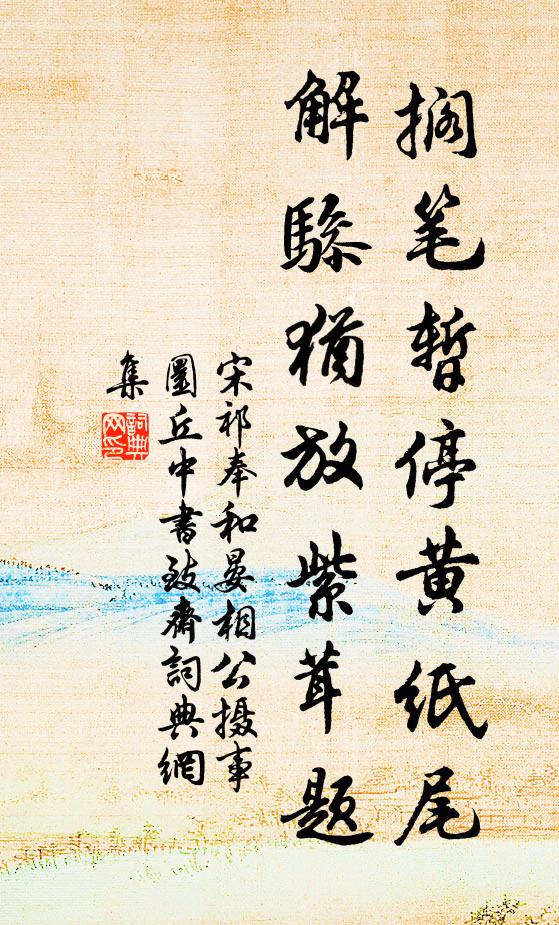 搁笔暂停黄纸尾
解骖犹放紫茸题
宋祁奉和晏相公摄事
圜丘中書致齋詞典網
集
詞典
网印